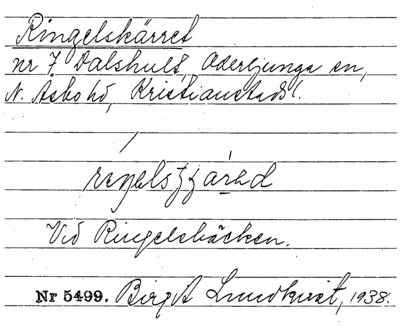 Ringelskärret
nr 7 Dalshult, Oderljunga sn,
N. Åsbo hd, Kristianstads l.
Vid Ringelsbäcken.
Nr 5499. Birgit Lundkvist, 1938.